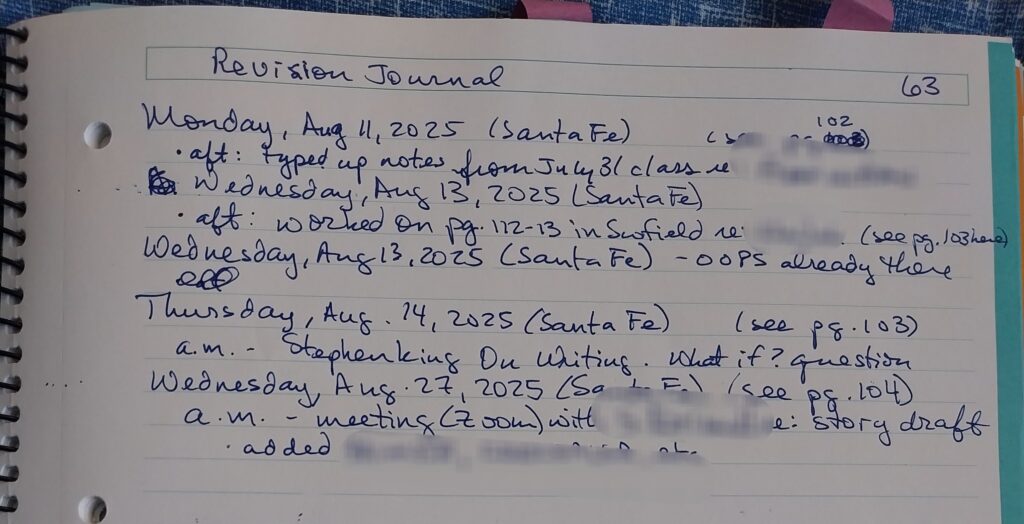 Revision Journal 63
Monday, Aug 11, 2025 (Santa Fe) 102
• aft: typed up notes from July 31 class re
Wednesday, Aug 13, 2025 (Santa Fe)
• aft: worked on pg. 112-13 in Scofield re: (see pg. 103 here)
Wednesday, Aug 13, 2025 (Santa Fe) - OOPS already there
Thursday, Aug. 14, 2025 (Santa Fe) (see pg. 103)
a.m. - Stephen King On Writing. What if? question
Wednesday, Aug. 27, 2025 (Santa Fe) (see pg. 104)
a.m. - meeting (Zoom) with re: story draft
• added